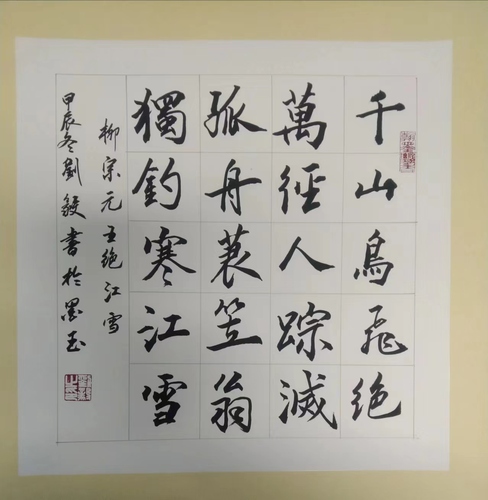 千山鳥飛絕
萬徑人踪滅
孤舟蓑笠翁
獨釣寒江雪
柳宗元五絕江雪
甲辰冬劉毅書於墨玉